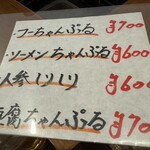 フーちゃんぷる ¥700
・ソーメンちゃんぷる ¥600
人参シリシリ ¥600
豆腐ちゃんぷる ¥70